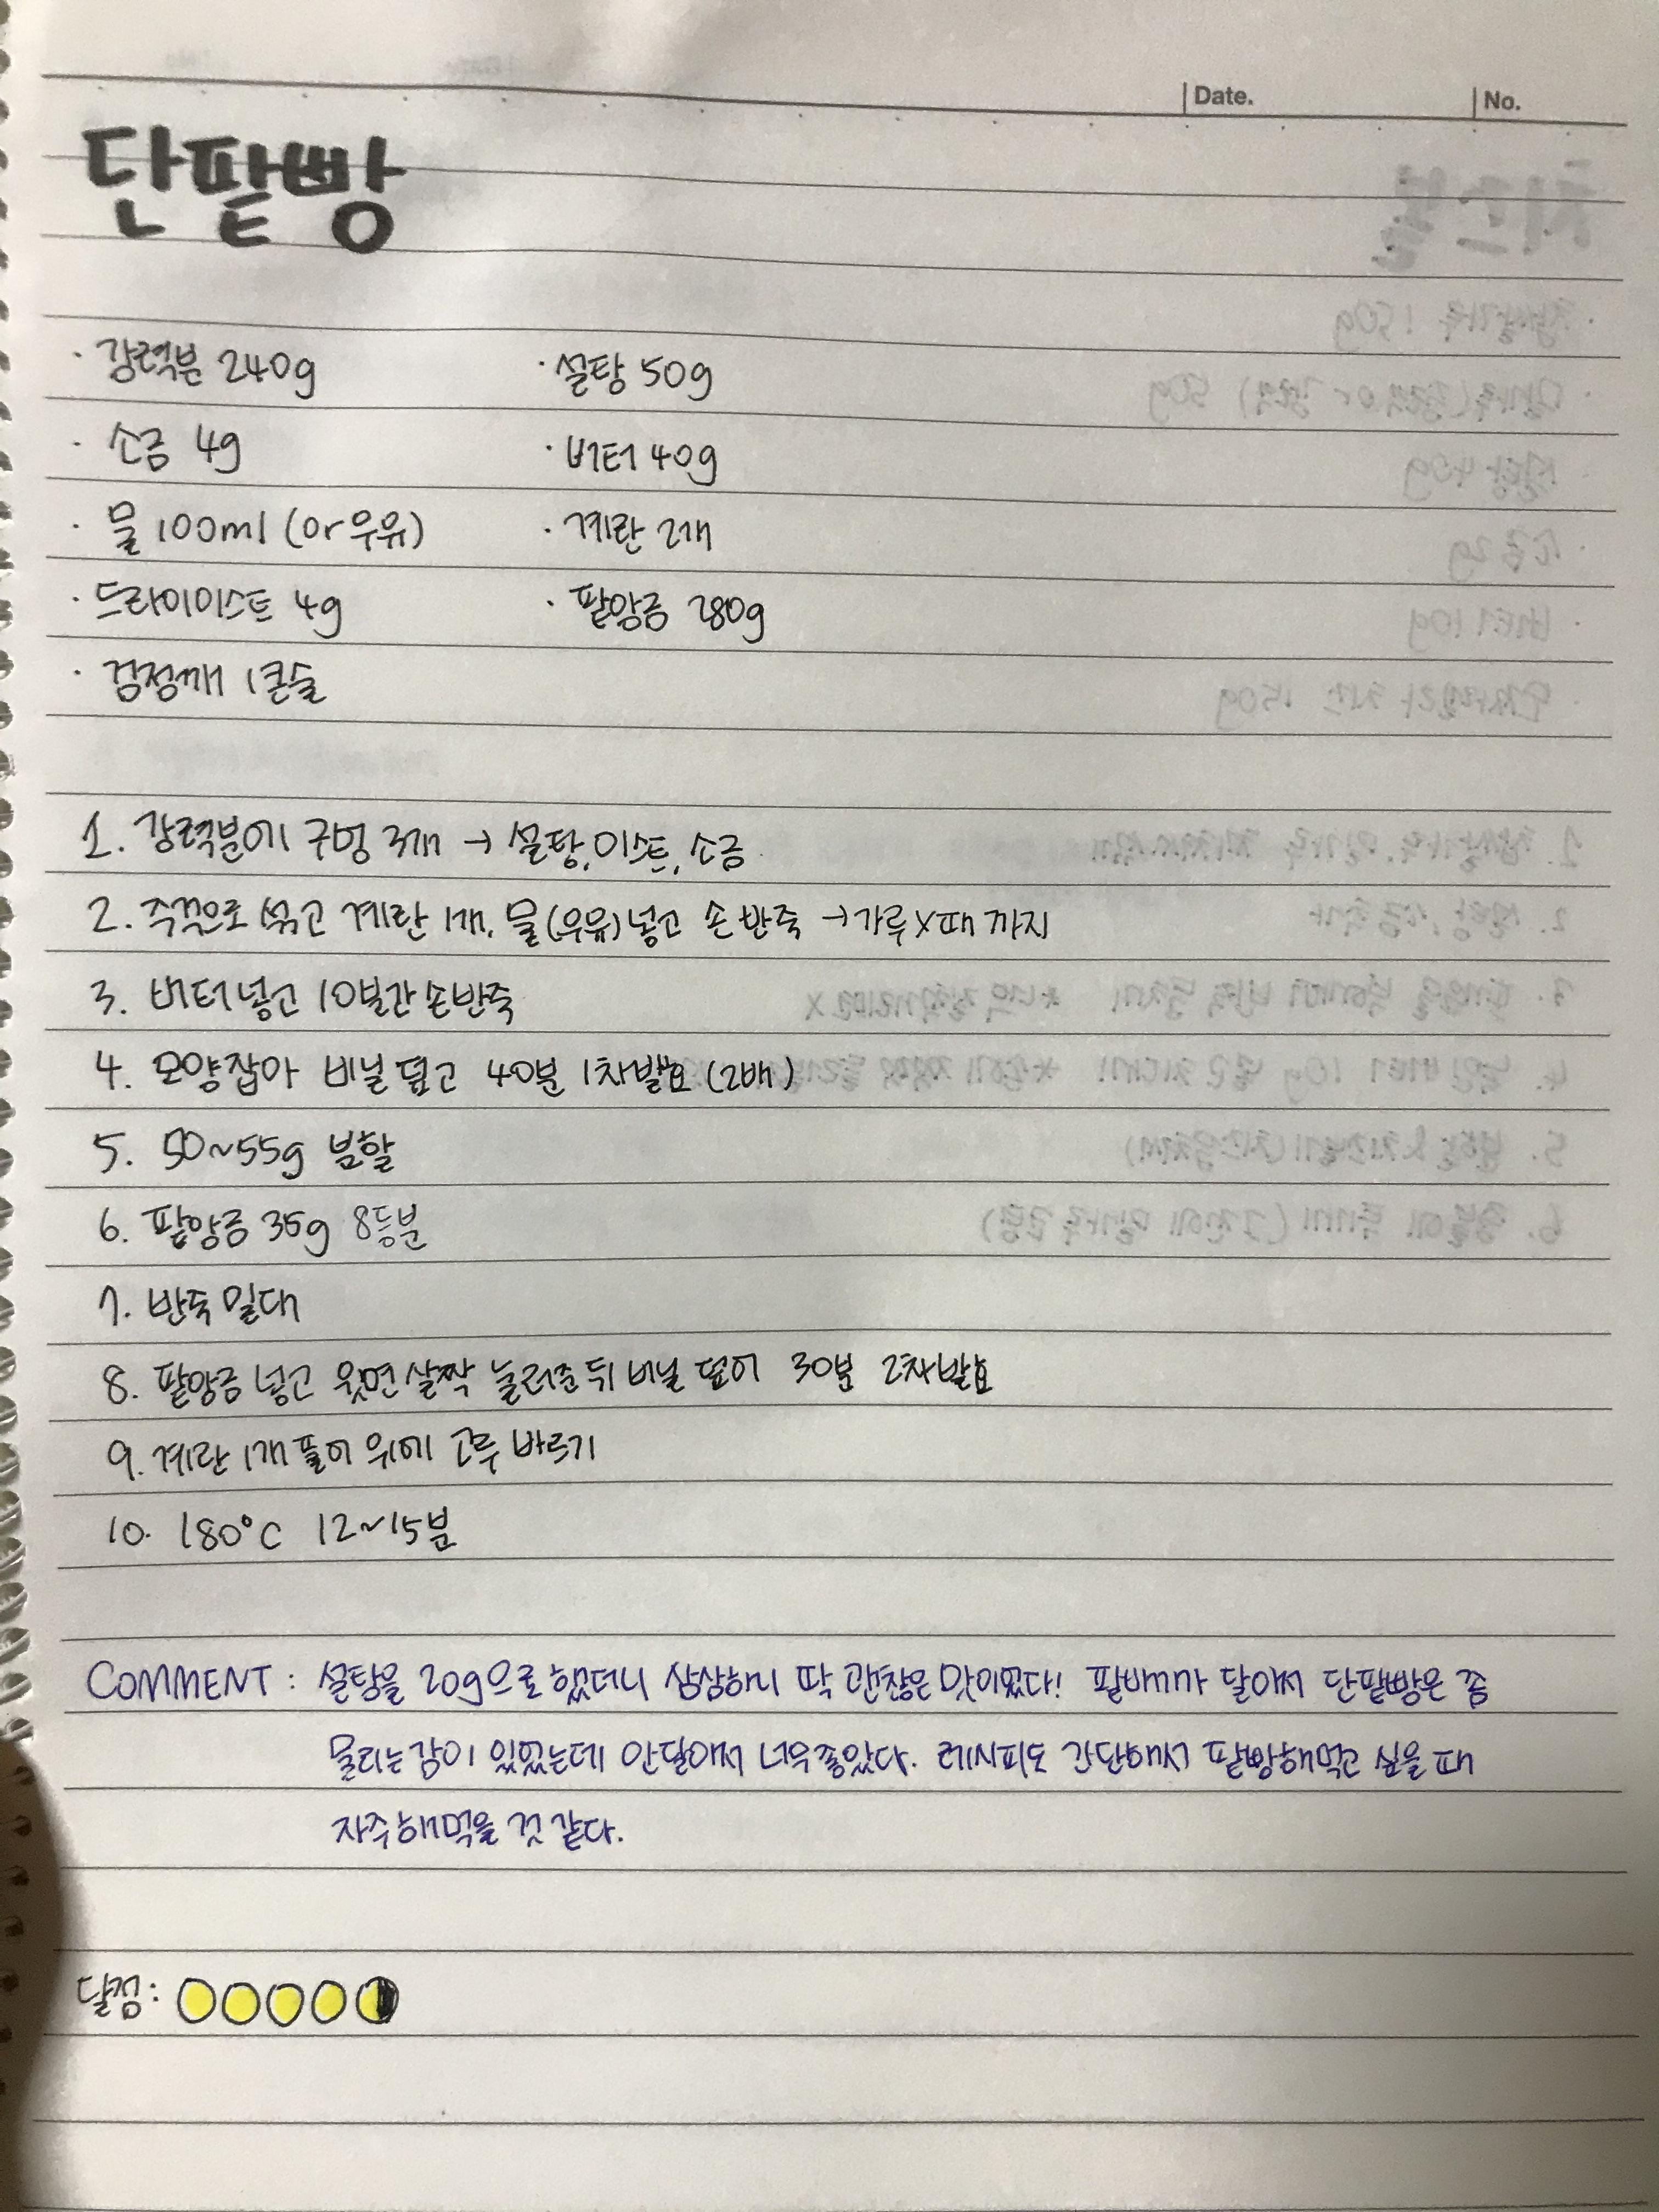 Date. No.
단팥빵
· 강력분 240g · 설탕 50g
· 소금 4g · 버터 40g
· 물 100ml (or 우유) · 계란 2개
· 드라이이스트 4g · 팥앙금 280g
· 검정깨 1큰술
1. 강력분에 구멍 3개 → 설탕, 이스트, 소금
2. 주걱으로 섞고 계란 1개, 물(우유)넣고 손반죽 → 가루X때 까지
3. 버터넣고 10분간 손반죽
4. 모양잡아 비닐 덮고 40분 1차발효 (2배)
5. 50~55g 분할
6. 팥앙금 35g 8등분
7. 반죽 밀대
8. 팥앙금 넣고 윗면 살짝 눌러준 뒤 비닐 덮어 30분 2차발효
9. 계란 1개 풀어 위에 고루 바르기
10. 180°C 12~15분
COMMENT : 설탕을 20g으로 했더니 삼삼하니 딱 괜찮은 맛이었다! 팥빠 달아서 단팥빵은 좀
물리는감이 있었는데 안달아서 너무좋았다. 레시피도 간단해서 팥빵해먹고 싶을 때
자주해먹을 것 같다.
달점: